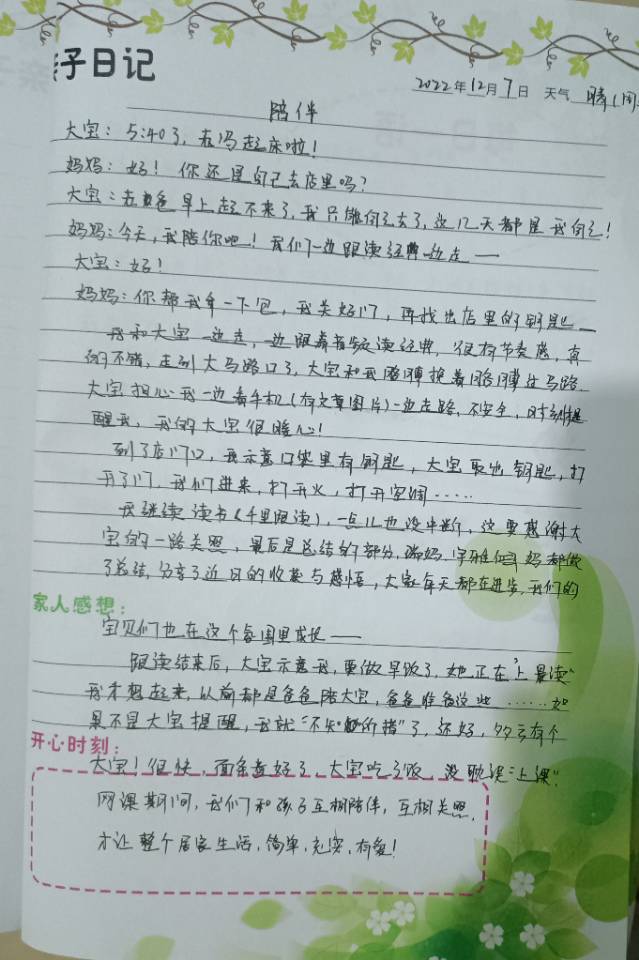 亲子日记
2022年12月7日 天气 晴(周
陪伴
大宝：5:40了，老妈起床啦！
妈妈：好！你还是自己去店里吗？
大宝：老爸早上起不来了，我只能自己去了，这几天都是我自己！
妈妈：今天，我陪你吧！我们一边跟读经典一边走——
大宝：好！
妈妈：你帮我拿一下包，我关好门，再找出店里的钥匙——
我和大宝一边走，一边跟着书友读经典，很有节奏感，真
的不错，走到大马路口了，大宝和我胳膊挽着胳膊过马路，
大宝担心我一边看手机(有文章图片)一边走路，不安全，时刻提
醒我，我的大宝很暖心！
到了店门口，我示意口袋里有钥匙，大宝取出钥匙，打
开了门，我们进来，打开火，打开空调……
我继续读书(千里跟读)，一点儿也没中断，这要感谢大
宝的一路关照，最后是总结的部分，妈都做
了总结，分享了近日的收获与感悟，大家每天都在进步，我们的
家人感想：
宝贝们也在这个氛围里成长——
跟读结束后，大宝示意我，要做早饭了，她正在"上晨读"
我才想起来，以前都是爸爸陪大宝，爸爸准备这些……如
果不是大宝提醒，我就"不知所措"了，还好，多亏有个
开心时刻：
大宝！很快，面条煮好了，大宝吃了饭，没耽误"上课"。
网课期间，我们和孩子互相陪伴，互相关照，
才让整个居家生活，简单，充实，有爱！